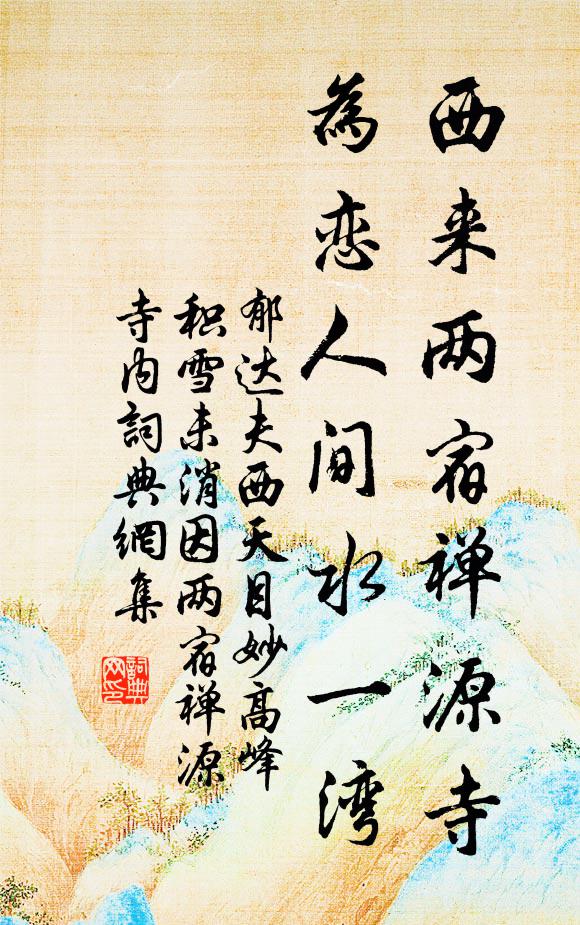 西来两宿禅源寺
為恋人间水一湾
郁达夫西天目妙高峰
积雪未消因两宿禅源
寺内詞典網集
詞典
网印